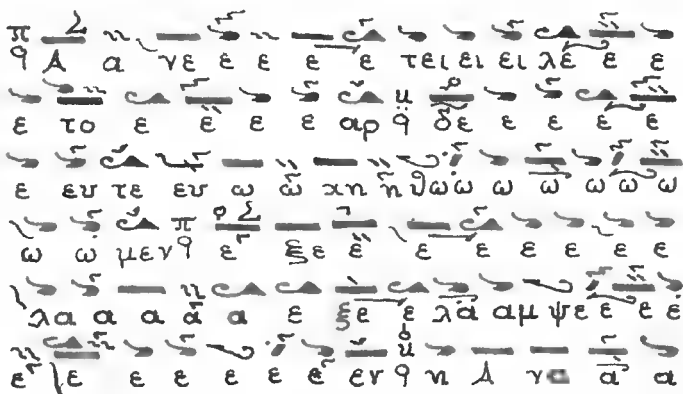 π q A α νε ε ε ε ε τει ει ει λε ε ε
ε το ε ε ε ε αρ q δε ε ε ε ε
ε ευ τε ευ ω ω χη η θω ω ω ω ω ω ω
ω ω μεν π q ε ξε ε ε ε ε ε ε ε
λα α α α α ε ξε ε λα αμ ψε ε ε ε
ε ε ε ε ε ε ε εν q η A να α α